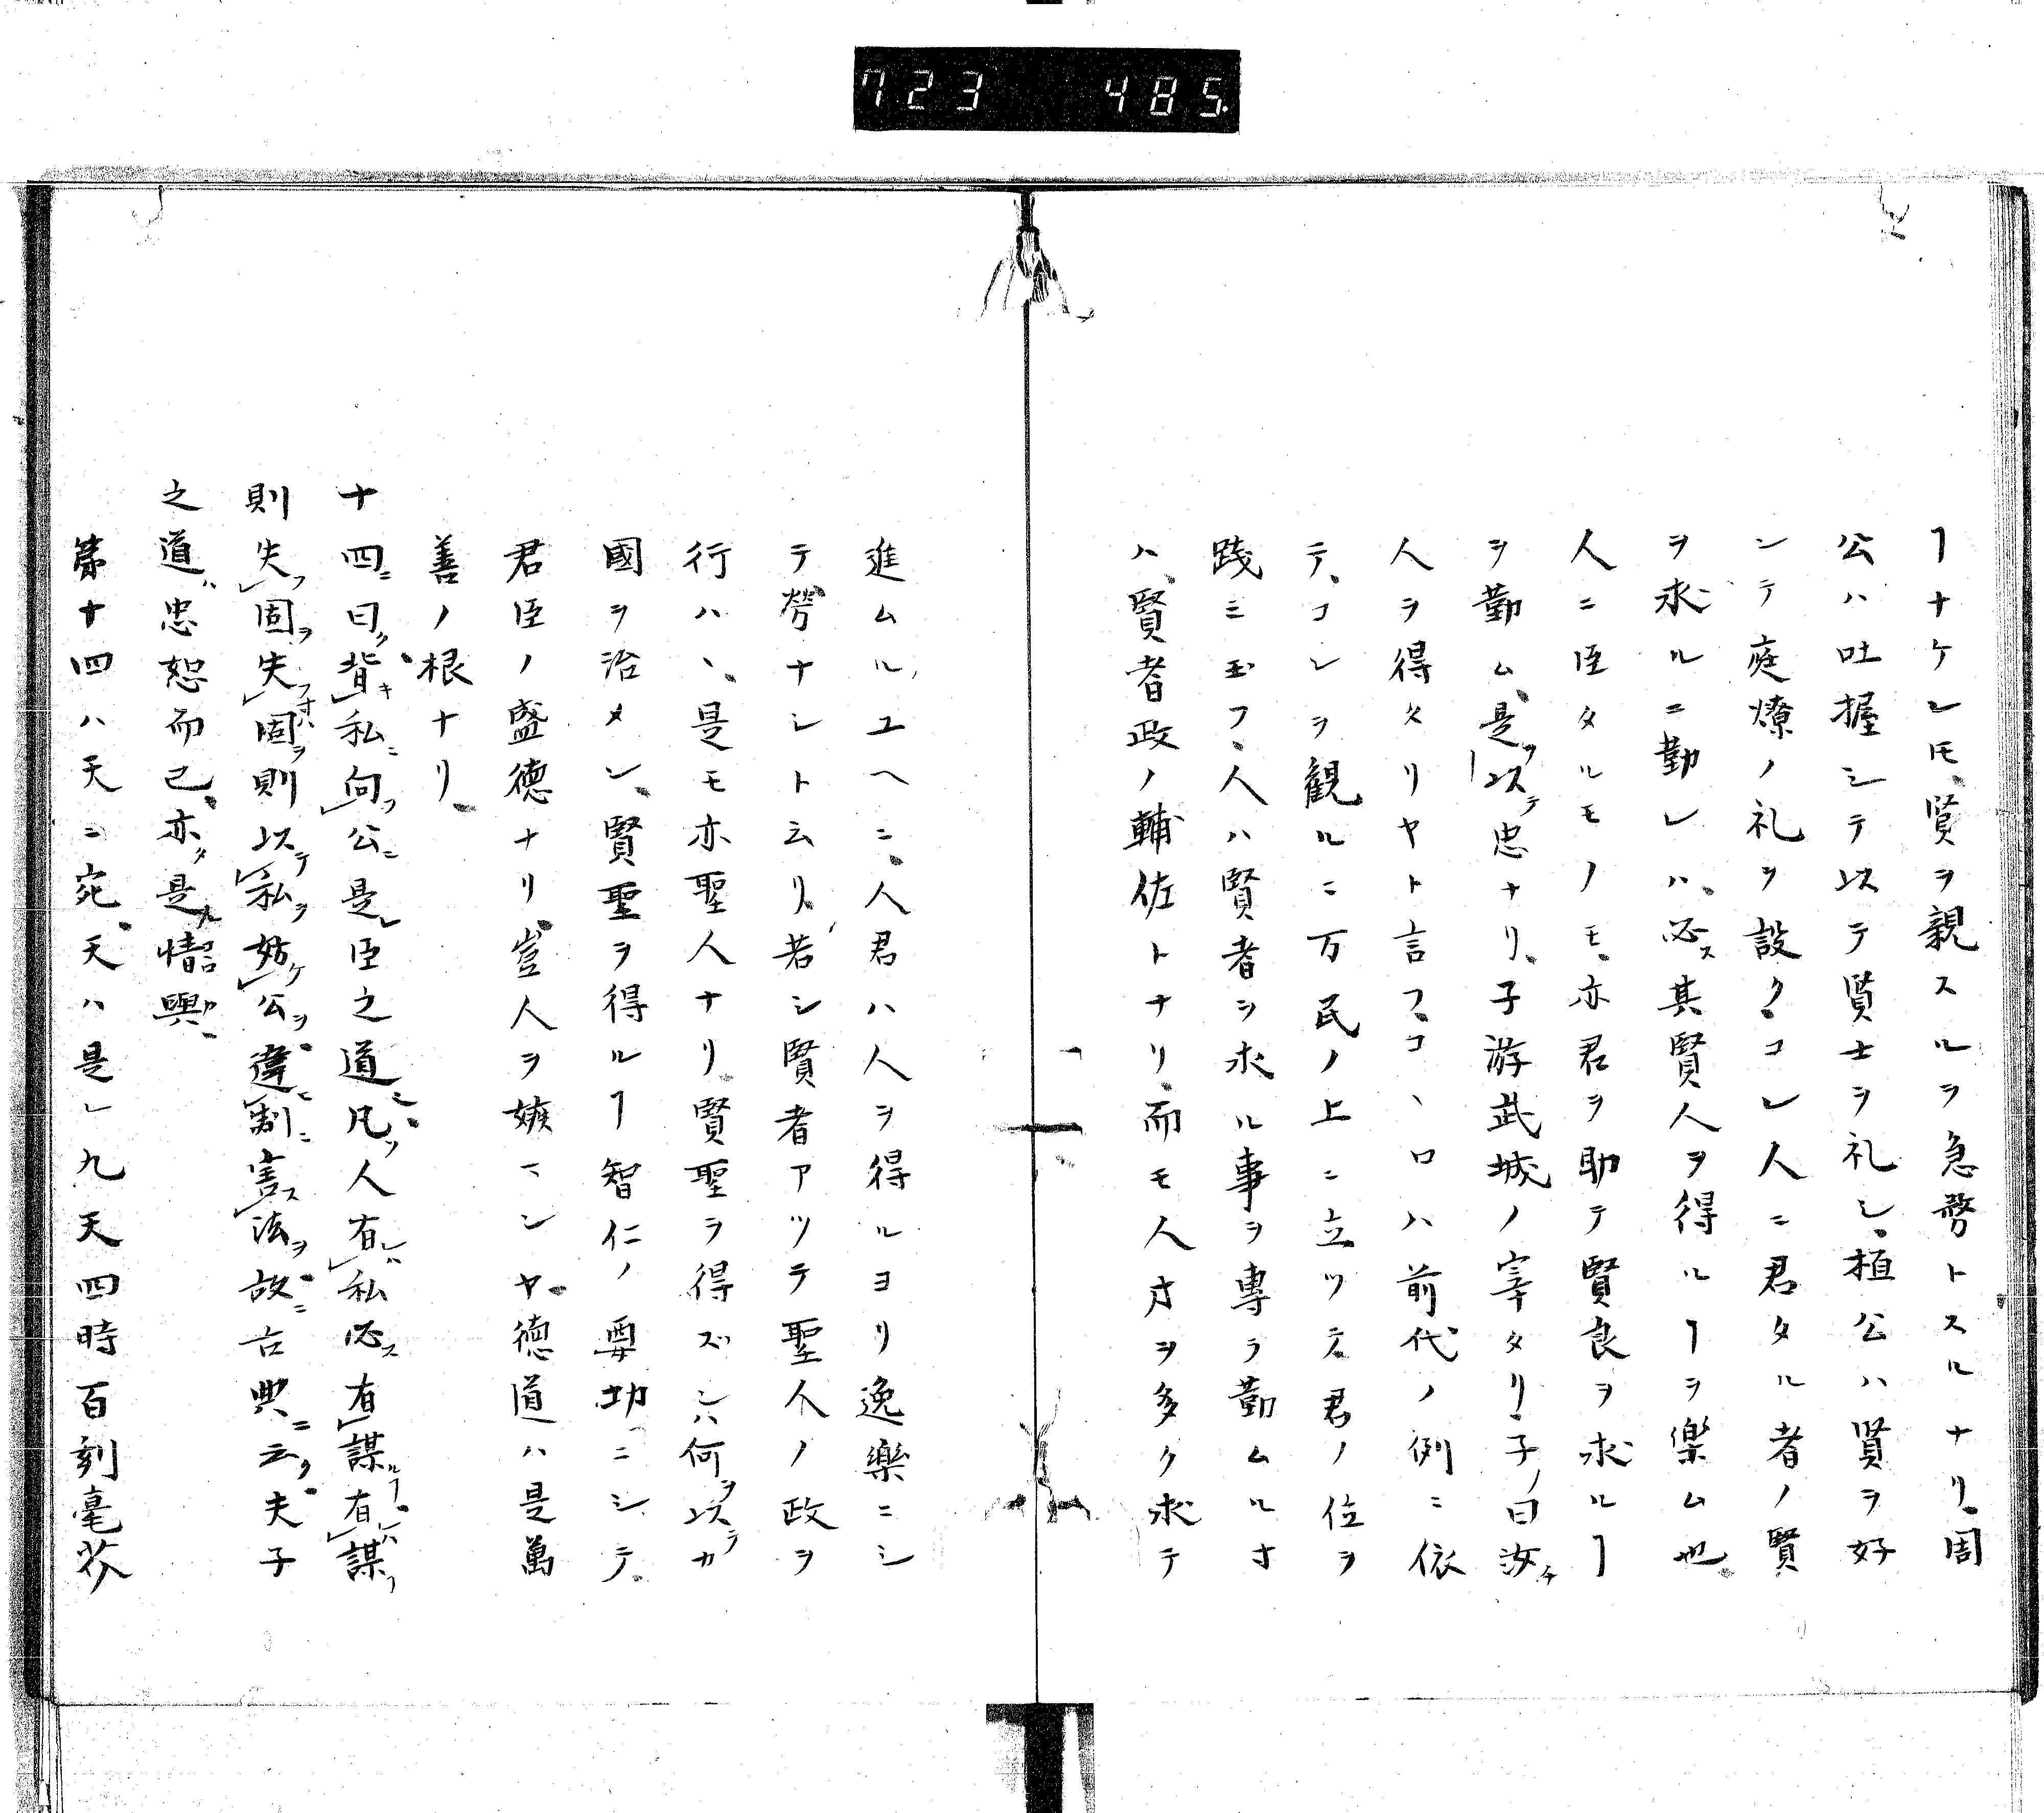 723 485
ヿナケレ𪜈、賢ヲ親スルヲ急務トスルナリ、周
公ハ吐握シテ以テ賢士ヲ礼シ、桓公ハ賢ヲ好
ンテ庭燎ノ礼ヲ設ク、コレ人ニ君タル者ノ賢
ヲ求ルニ勤レハ、必ス其賢人ヲ得ルヿヲ樂ム也、
人ニ臣タルモノモ、亦君ヲ助テ賢良ヲ求ルヿ
ヲ勤ム、是ヲ以テ忠ナリ、子游武城ノ宰タリ、子ノ曰汝チ
人ヲ得タリヤト言フ、コヽロハ前代ノ例ニ依
テ、コレヲ観ルニ万民ノ上ニ立ツテ、君ノ位ヲ
践ミ玉フ、人ハ賢者ヲ求ル事ヲ專ラ勤ムルナ
ハ、賢者政ノ輔佐トナリ、而モ人才ヲ多ク求テ
進ムルユヘニ、人君ハ人ヲ得ルヨリ逸樂ニシ
テ勞ナシト云リ、若シ賢者アツテ聖人ノ政ヲ
行ハヽ、是モ亦聖人ナリ、賢聖ヲ得ズンハ何ヲ以テカ
國ヲ治メン、賢聖ヲ得ルヿ智仁ノ要功ニシテ、
君臣ノ盛徳ナリ、豈人ヲ嫉マンヤ、徳道ハ是萬
善ノ根ナリ、
十四ニ曰ク、背キ私ニ向フ公ニ是レ臣之道ニ、凡ソ人有レハ私必ス有謀ルヿ、有レハ謀フ
則失フ固ヲ、失フオハ固ヲ則以テ私ヲ妨ケ公ヲ、違ニ制ニ害ス法ヲ、故ニ古典ニ云ク、夫子
之道ハ忠恕而已、亦タ是ル情興
第十四ハ天ニ宛、天ハ是レ九天四時百刻毫芥